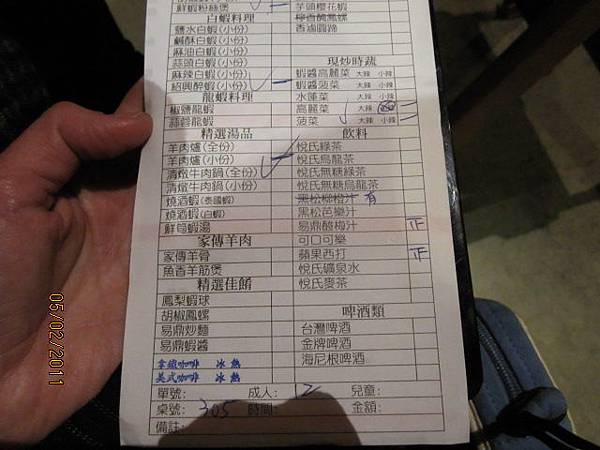 鮮蝦粉絲煲 芋頭櫻花蝦
白蝦料理
鹽水白蝦(小份) 香滷圓蹄
鹹酥白蝦(小份)
麻油白蝦(小份)
蒜頭白蝦(小份) 現炒時蔬
麻辣白蝦(小份) 蝦醬高麗菜 大辣 小辣
紹興醉蝦(小份) 蝦醬菠菜 大辣 小辣
龍蝦料理 水蓮菜 大辣 小辣
椒鹽龍蝦 高麗菜 大辣
蒜蓉龍蝦 菠菜 大辣 小辣
精選湯品 飲料
羊肉爐(全份) 悅氏綠茶
羊肉爐(小份) 悅氏烏龍茶
清燉牛肉鍋(全份) 悅氏無糖綠茶
清燉牛肉鍋(小份) 悅氏無糖烏龍茶
燒酒蝦(泰國蝦) 黑松柳橙汁 有
燒酒蝦(白蝦) 黑松芭樂汁
鮮筍蝦湯 易鼎酸梅汁 正
家傳羊肉 可口可樂
家傳羊骨 蘋果西打 正
魚香羊筋煲 悅氏礦泉水
精選佳餚 悅氏麥茶
鳳梨蝦球
胡椒鳳螺 啤酒類
易鼎炒麵 台灣啤酒
易鼎蝦醬 金牌啤酒
拿鐵咖啡 冰 熱 海尼根啤酒
美式咖啡 冰 熱
單號: 成人: 12 兒童:
桌號: 305 時間: 金額:
備註:
05/02/2011